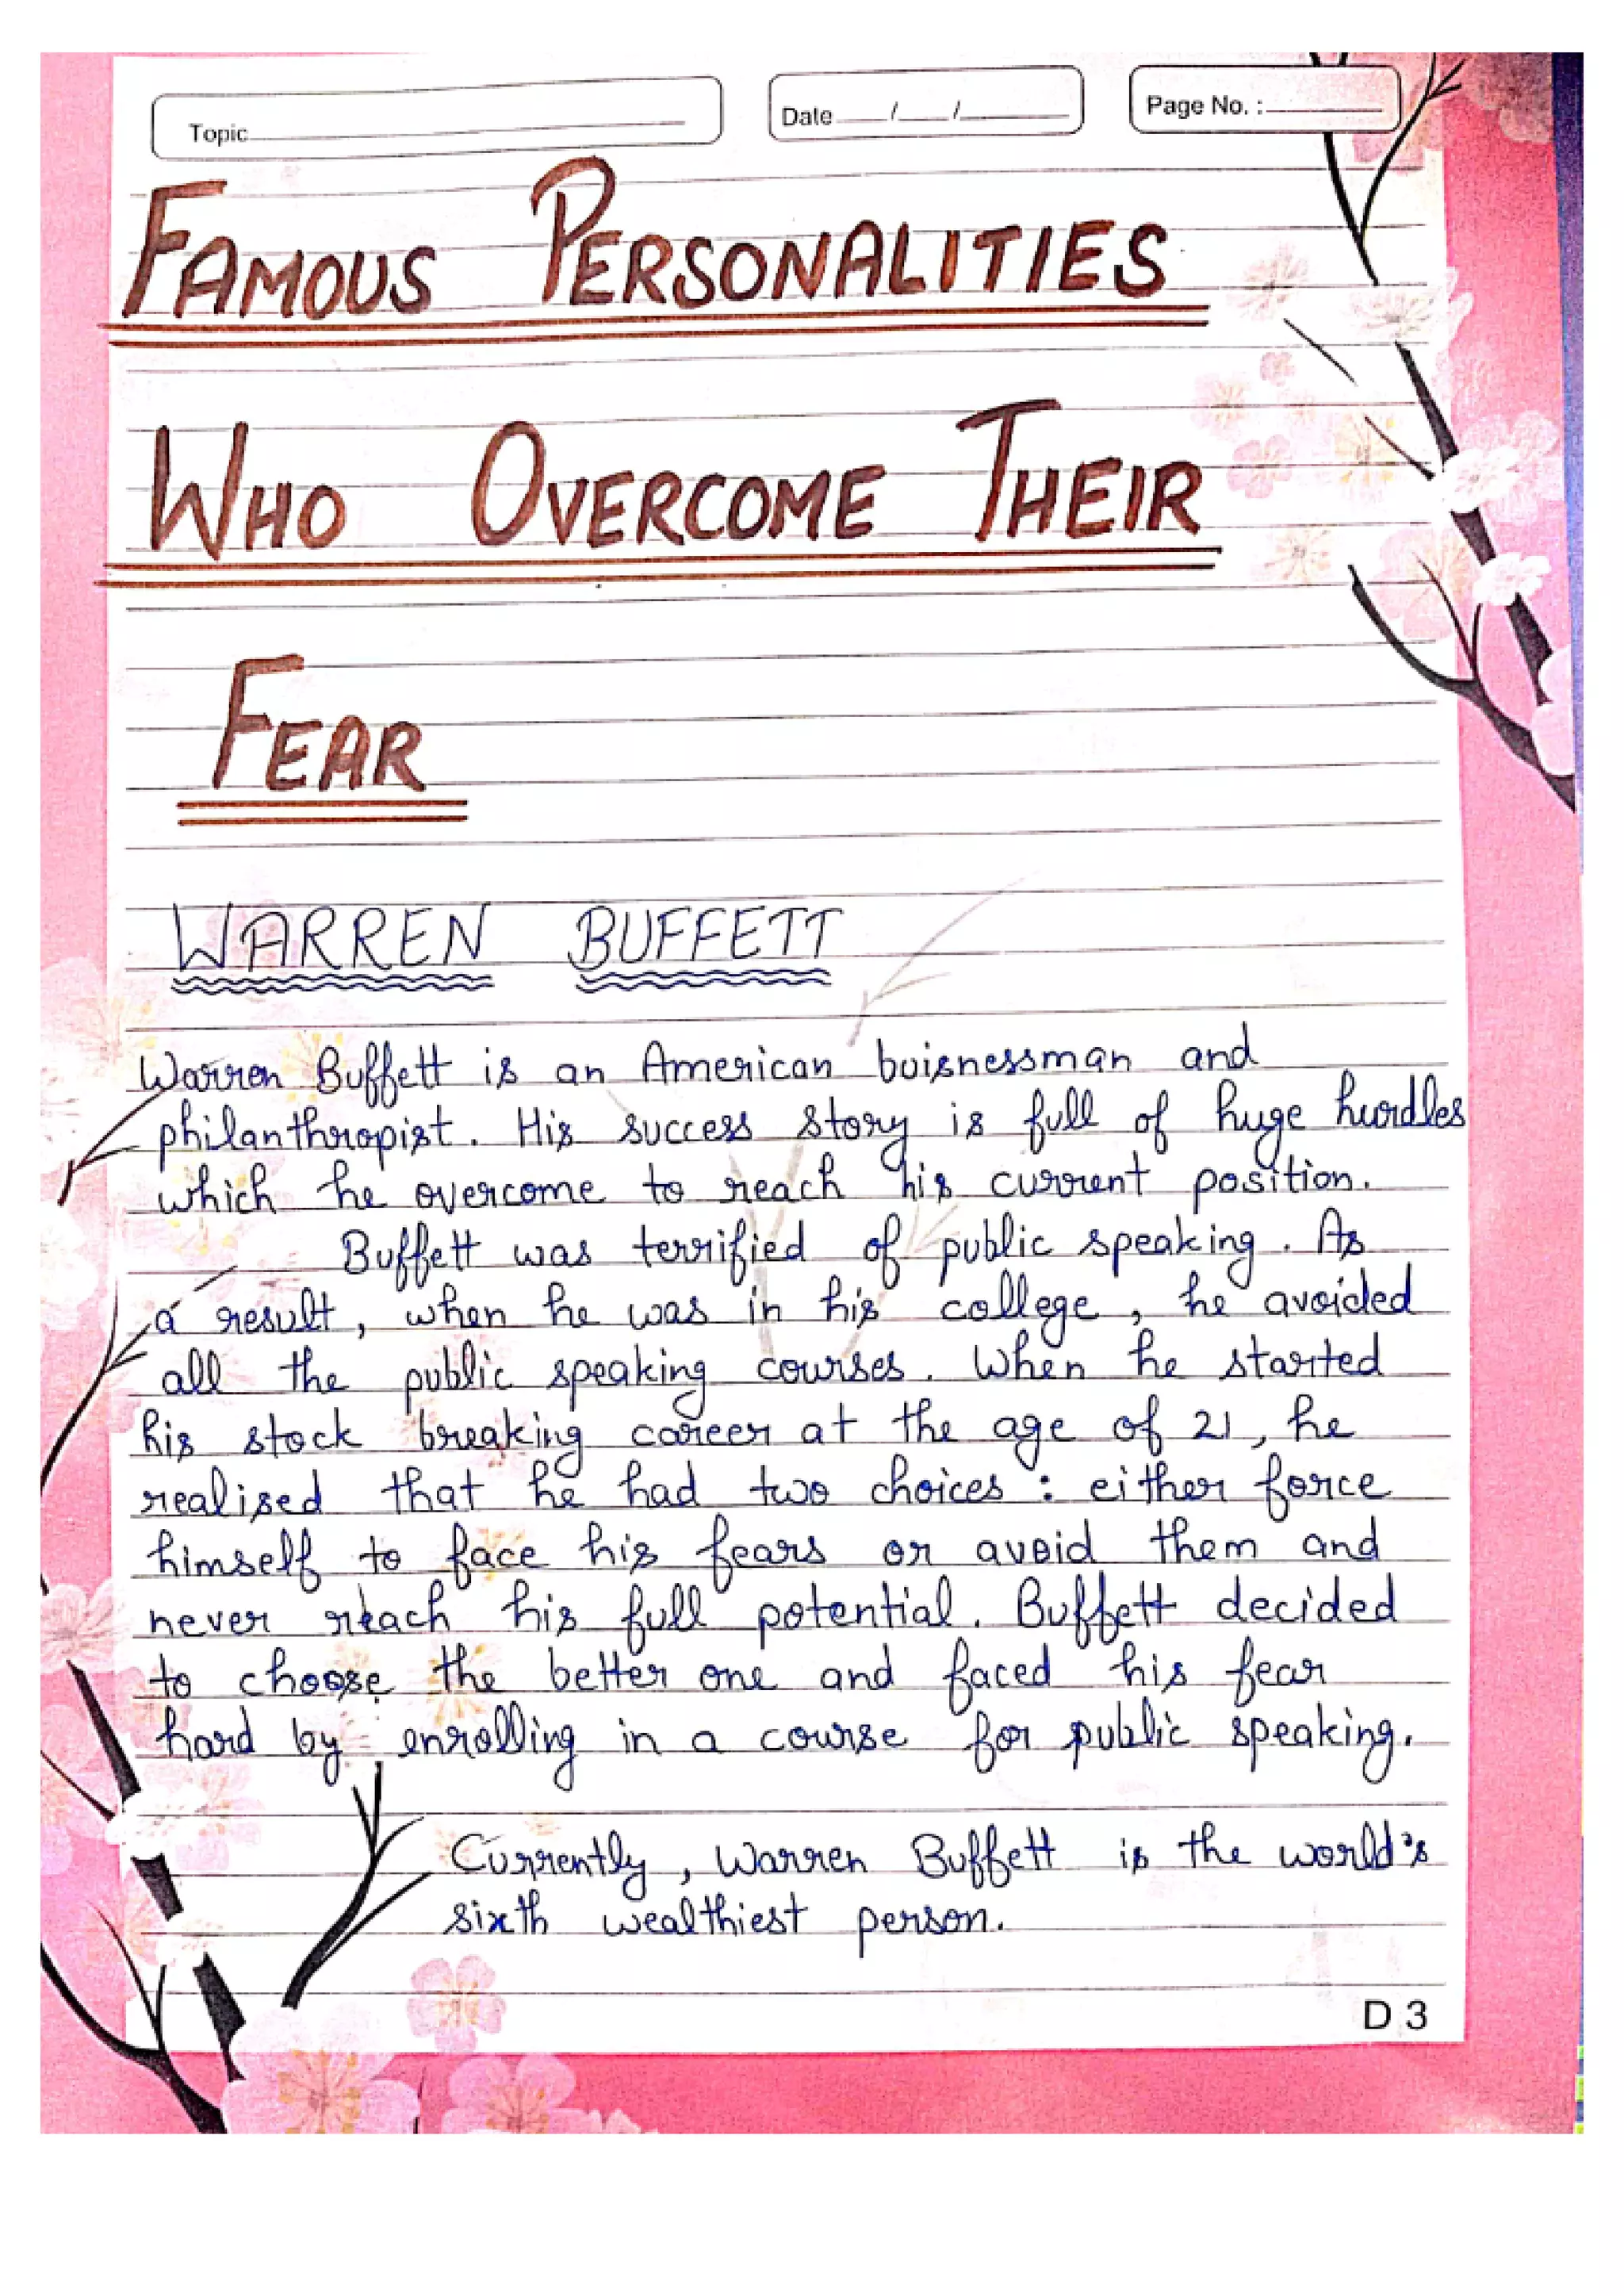 Topic
Date / /
Page No. :
FAMOUS PERSONALITIES
WHO OVERCOME THEIR
FEAR
WARREN BUFFETT
Warren Buffett is an American buisnessman and
philanthropist. His success story is full of huge hurdles
which he overcome to reach his current position.
Buffett was terrified of public speaking. As
a result, when he was in his college, he avoided
all the public speaking courses. When he started
his stock breaking career at the age of 21, he
realised that he had two choices : either force
himself to face his fears or avoid them and
never reach his full potential. Buffett decided
to choose the better one and faced his fear
hard by enrolling in a course for public speaking.
Currently, Warren Buffett is the world's
sixth wealthiest person.
D 3